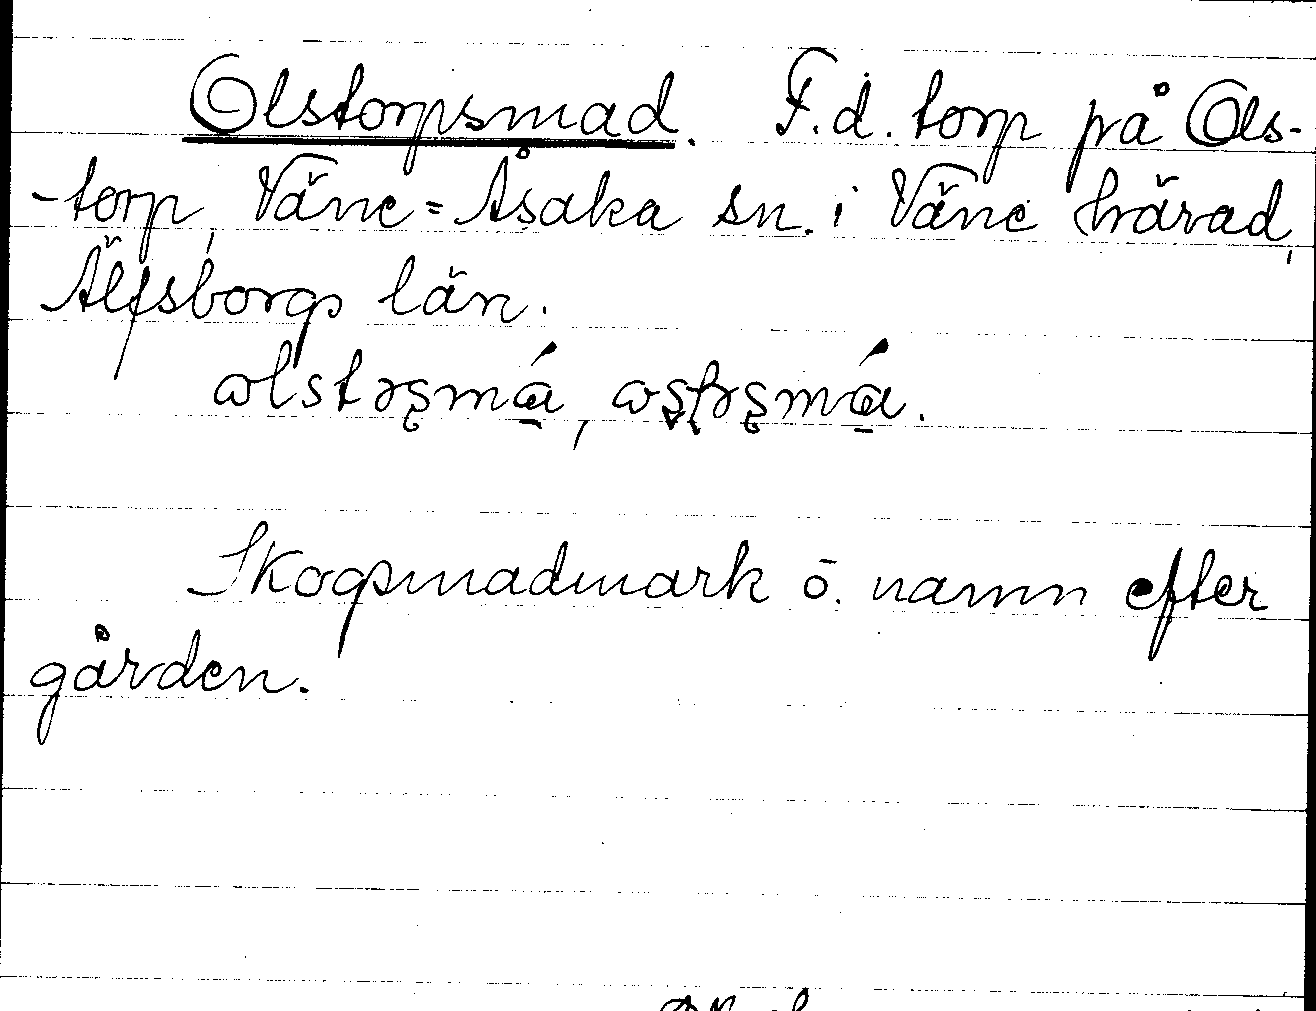 Olstorpsmad. F.d. torp på Ols-
-torp, Väne=Åsaka sn. i Väne härad,
Älfsborgs län.
Skogsmadmark o. namn efter
gården.